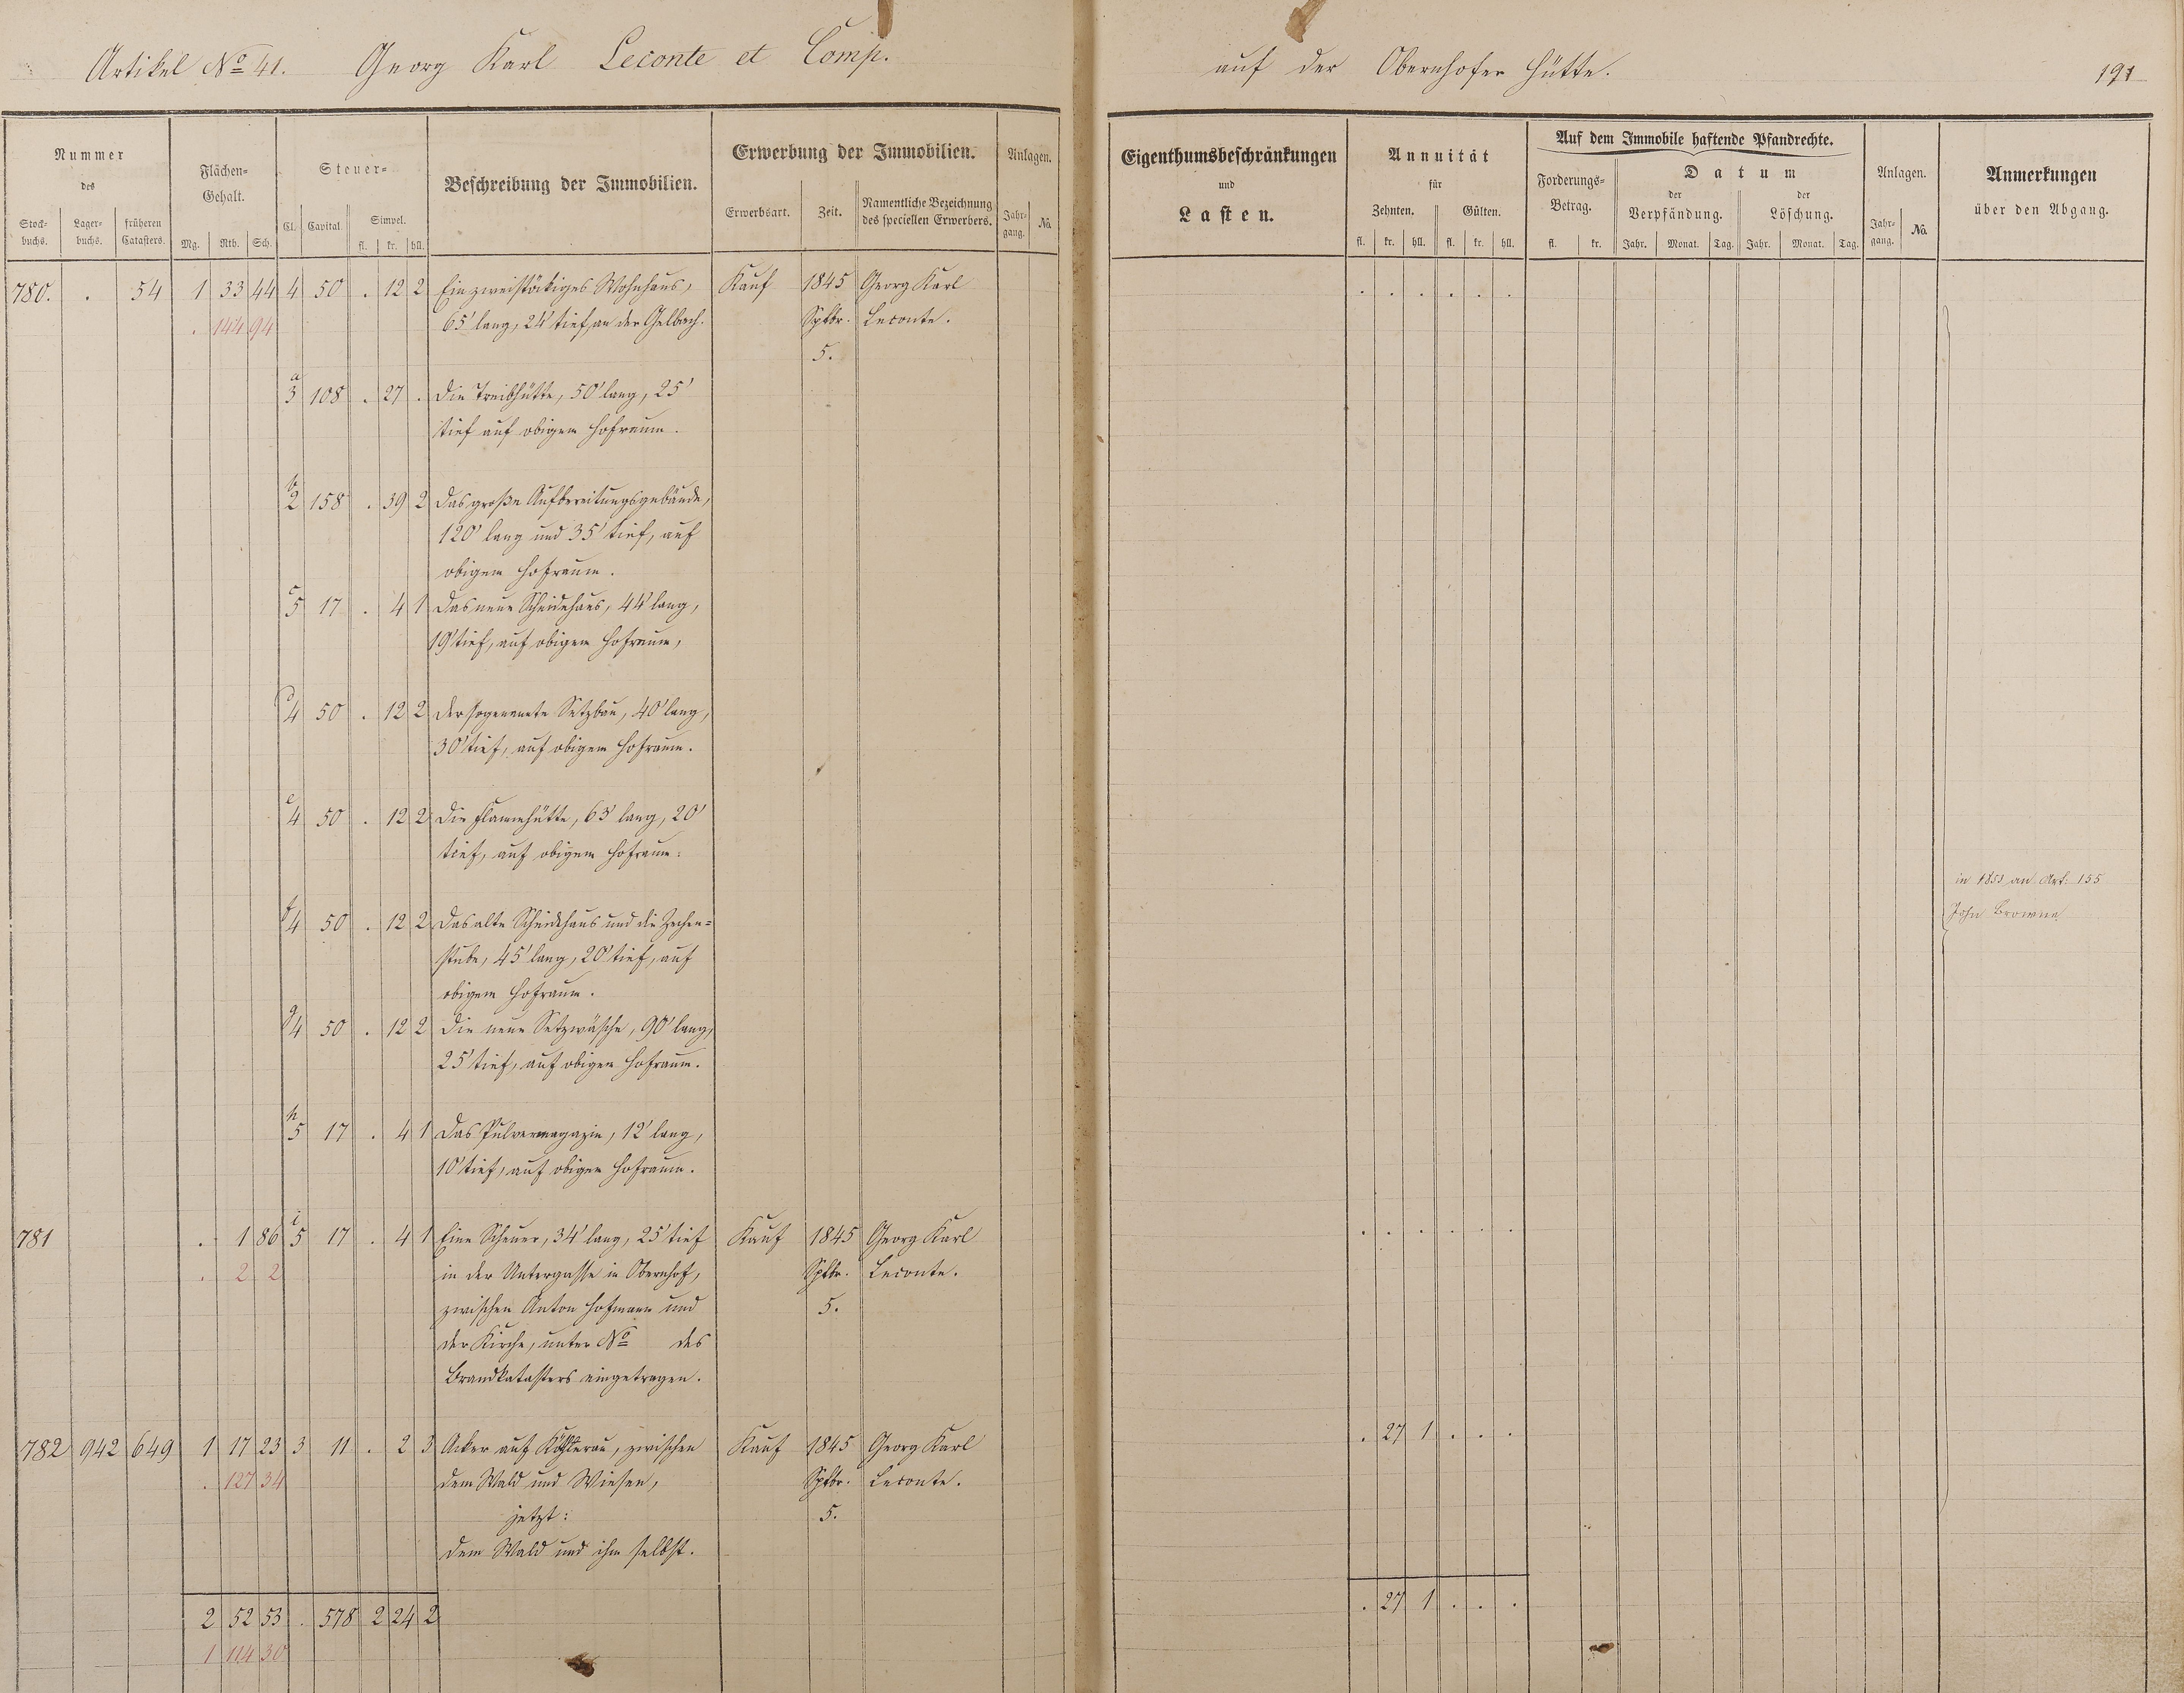 Artikel No 41. Georg Karl Leconte et Comp. auf der Obernhofer Hütte. 191
Nummer des
Stock-buchs. Lager-buchs. früheren Catasters.
Flächen-Gehalt.
Mg. Rth. Sch.
Steuer-
Cl. Capital. Simpel.
fl. kr. hll.
Beschreibung der Immobilien.
Erwerbung der Immobilien.
Erwerbsart. Zeit. Namentliche Bezeichnung des speciellen Erwerbers.
Anlagen.
Jahr-gang. No.
Eigenthumsbeschränkungen
und
Lasten.
Annuität
für
Zehnten. Gülten.
fl. kr. hll. fl. kr. hll.
Auf dem Immobile haftende Pfandrechte.
Forderungs-Betrag.
fl. kr.
Datum
der Verpfändung. der Löschung.
Jahr. Monat. Tag. Jahr. Monat. Tag.
Anlagen.
Jahr-gang. No.
Anmerkungen
über den Abgang.
780. . 54 1 33 44 4 50 . 12 2 Ein zweistöckiges Wohnhaus, Kauf 1845 Georg Karl . . . . . .
. 144 94 65' lang, 24' tief, an der Gelbach. Spbr. Leconte.
5.
a
3 108 . 27 . Die Treibhütte, 50' lang, 25'
tief auf obigem Hofraum.
b
2 158 . 39 2 Das große Aufbereitungsgebäude,
120' lang und 35' tief, auf
obigem Hofraum.
c
5 17 . 4 1 Das neue Scheidehaus, 44' lang,
19' tief, auf obigem Hofraum,
d
4 50 . 12 2 Der sogenannte Setzbau, 40' lang,
30' tief, auf obigem Hofraum.
e
4 50 . 12 2 Die Flammhütte, 63' lang, 20'
tief, auf obigem Hofraum.
in 1853 an Art: 155
John Browne
f
4 50 . 12 2 Das alte Scheidehaus und die Zechen-
stube, 45' lang, 20' tief, auf
obigem Hofraum.
g
4 50 . 12 2 Die neue Setzwäsche, 90' lang,
25' tief, auf obigem Hofraum.
h
5 17 . 4 1 Das Pulvermagazin, 12' lang,
10' tief, auf obigem Hofraum.
i
781 . 1 86 5 17 . 4 1 Eine Scheuer, 34' lang, 25' tief Kauf 1845 Georg Karl . . . . . .
. 2 2 in der Untergasse in Obernhof, Spbr. Leconte.
zwischen Anton Hofmann und 5.
der Kirche, unter No des
Brandkatasters eingetragen.
782 942 649 1 17 23 3 11 . 2 3 Acker auf, zwischen Kauf 1845 Georg Karl . 27 1 . . .
. 127 34 dem Wald und Wiesen, Spbr. Leconte.
jetzt: 5.
dem Wald und ihm selbst.
2 52 53 . 578 2 24 2 . 27 1 . . .
1 114 30